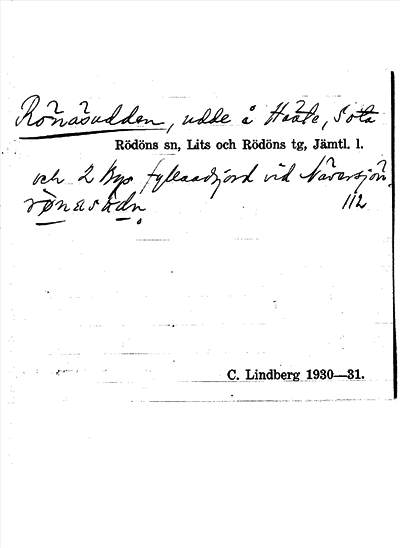 Rönäsudden, udde å Hääte, Sota
Rödöns sn, Lits och Rödöns tg, Jämtl. l.
och 2 Bys fyllaadjord vid Näversjön.
112
C. Lindberg 1930—31.